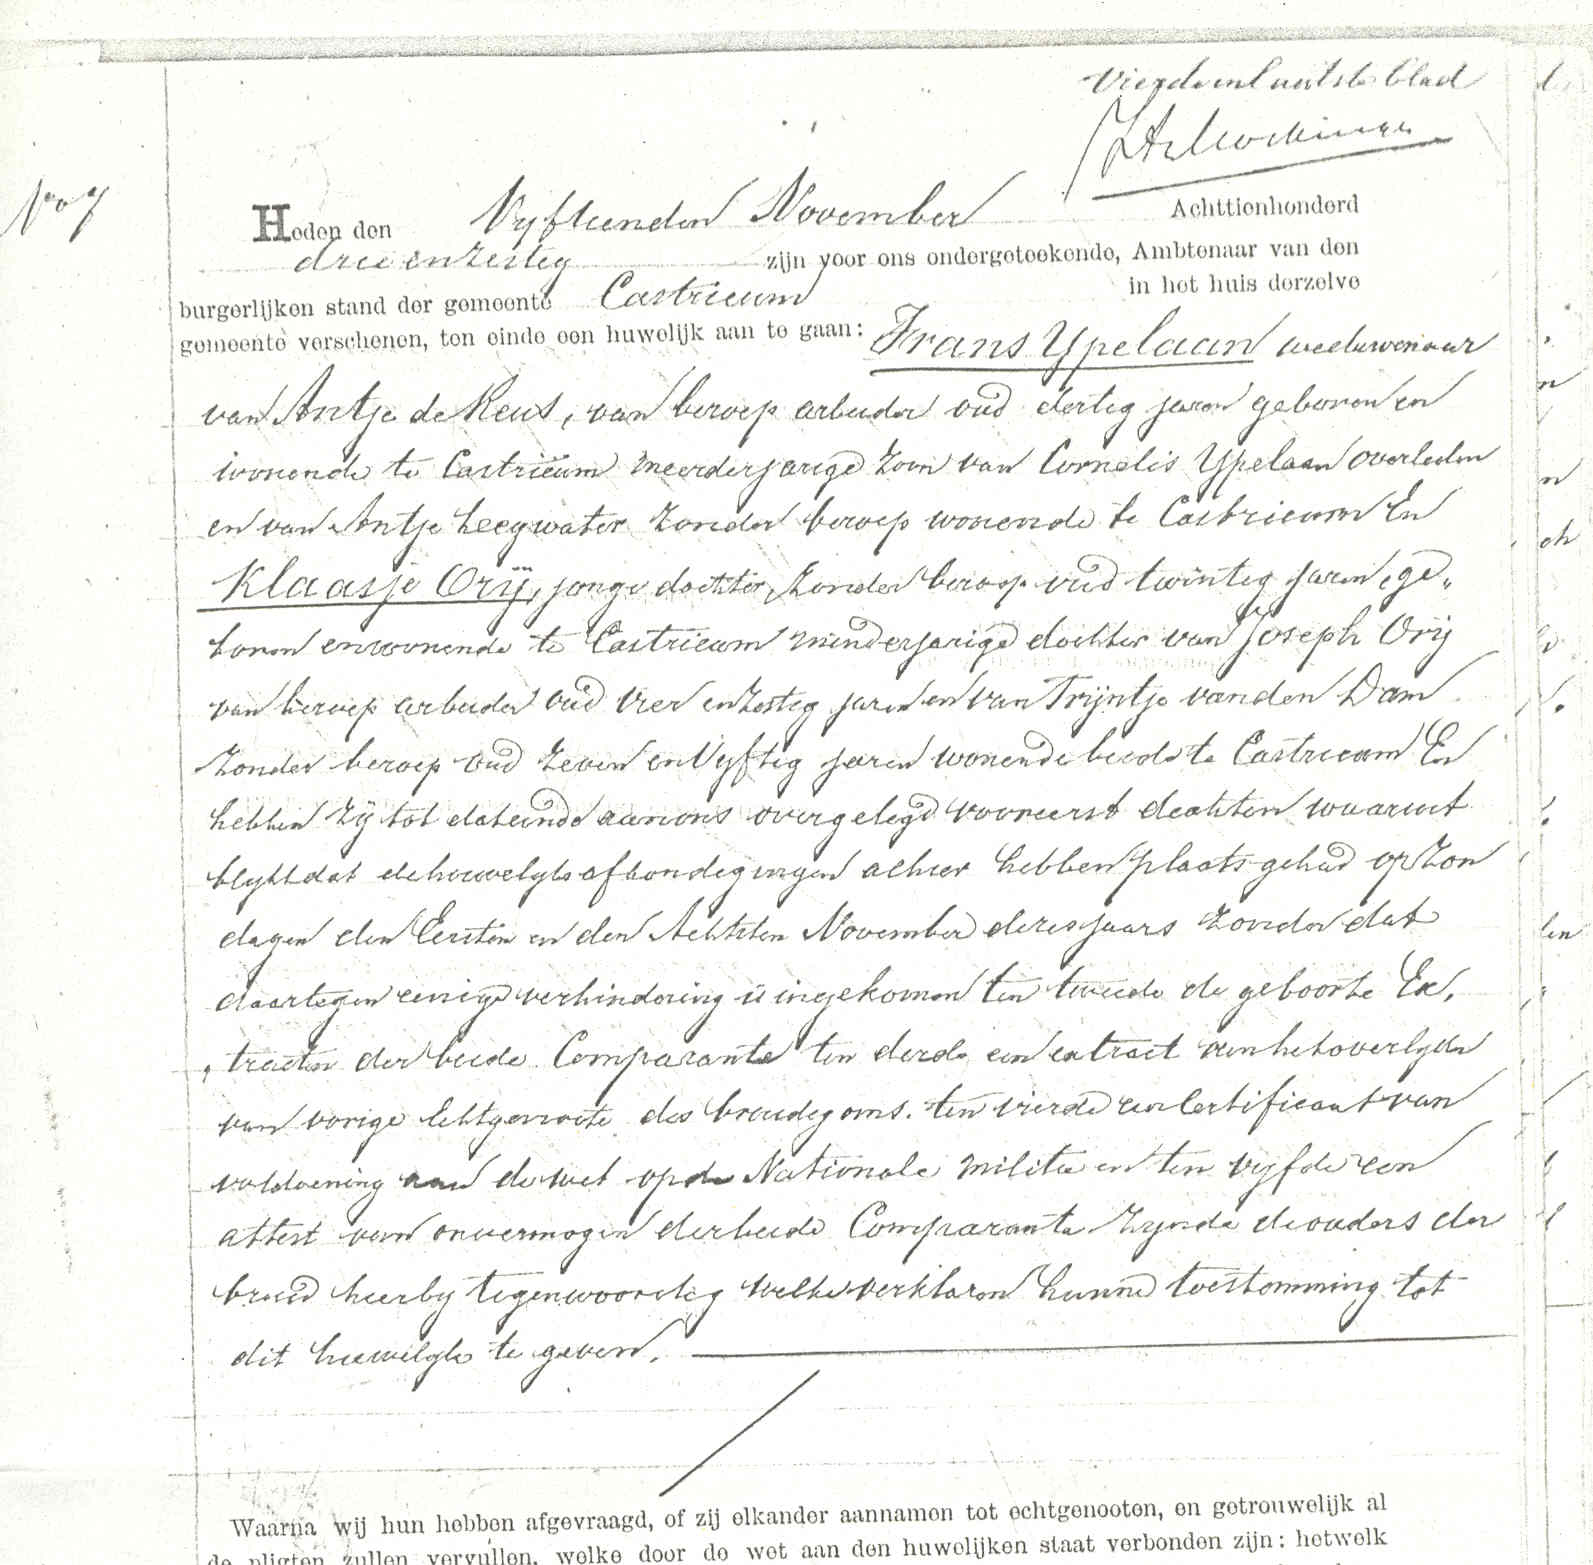 Vierde en laatste blad
No 7
Heden den Vyftienden November Achttienhonderd
drie en zestig zijn voor ons ondergeteekende, Ambtenaar van den
burgerlijken stand der gemeente Castricum in het huis derzelve
gemeente verschenen, ten einde een huwelijk aan te gaan: Frans Ypelaan weduwenaar
van Antje de Reus, van beroep arbeider oud dertig jaren geboren en
wonende te Castricum meerderjarige zoon van Cornelis Ypelaan overleden
en van Antje Leegwater zonder beroep wonende te Castricum En
Klaasje Orij, jonge dochter, zonder beroep oud twintig jaren, ge„
boren en wonende te Castricum minderjarige dochter van Joseph Orij
van beroep arbeider oud vier en zestig jaren en van Trijntje van den Dam
zonder beroep oud zeven en Vyftig jaren wonende beide te Castricum En
hebben zij tot dat einde aan ons overgelegd vooreerst de akten waaruit
blykt dat de huwelyks afkondigingen alhier hebben plaats gehad op Zon
dagen den Eersten en den Achtsten November dezes jaars zonder dat
daartegen eenige verhindering is ingekomen ten tweede de geboorte Ex,
„tracten der beide Comparante ten derde een extract van het overlyden
van vorige Echtgenoote des bruidegoms. ten vierde een Certificaat van
voldoening aan de wet op de Nationale militie en ten vyfde een
attest van onvermogen der beide Comparante zynde de ouders der
bruid hierby tegenwoordig welke verklaren hunne toestemming tot
dit huwelyk te geven.
Waarna wij hun hebben afgevraagd, of zij elkander aannamen tot echtgenooten, en getrouwelijk al
de pligten zullen vervullen, welke door de wet aan den huwelijken staat verbonden zijn: hetwelk